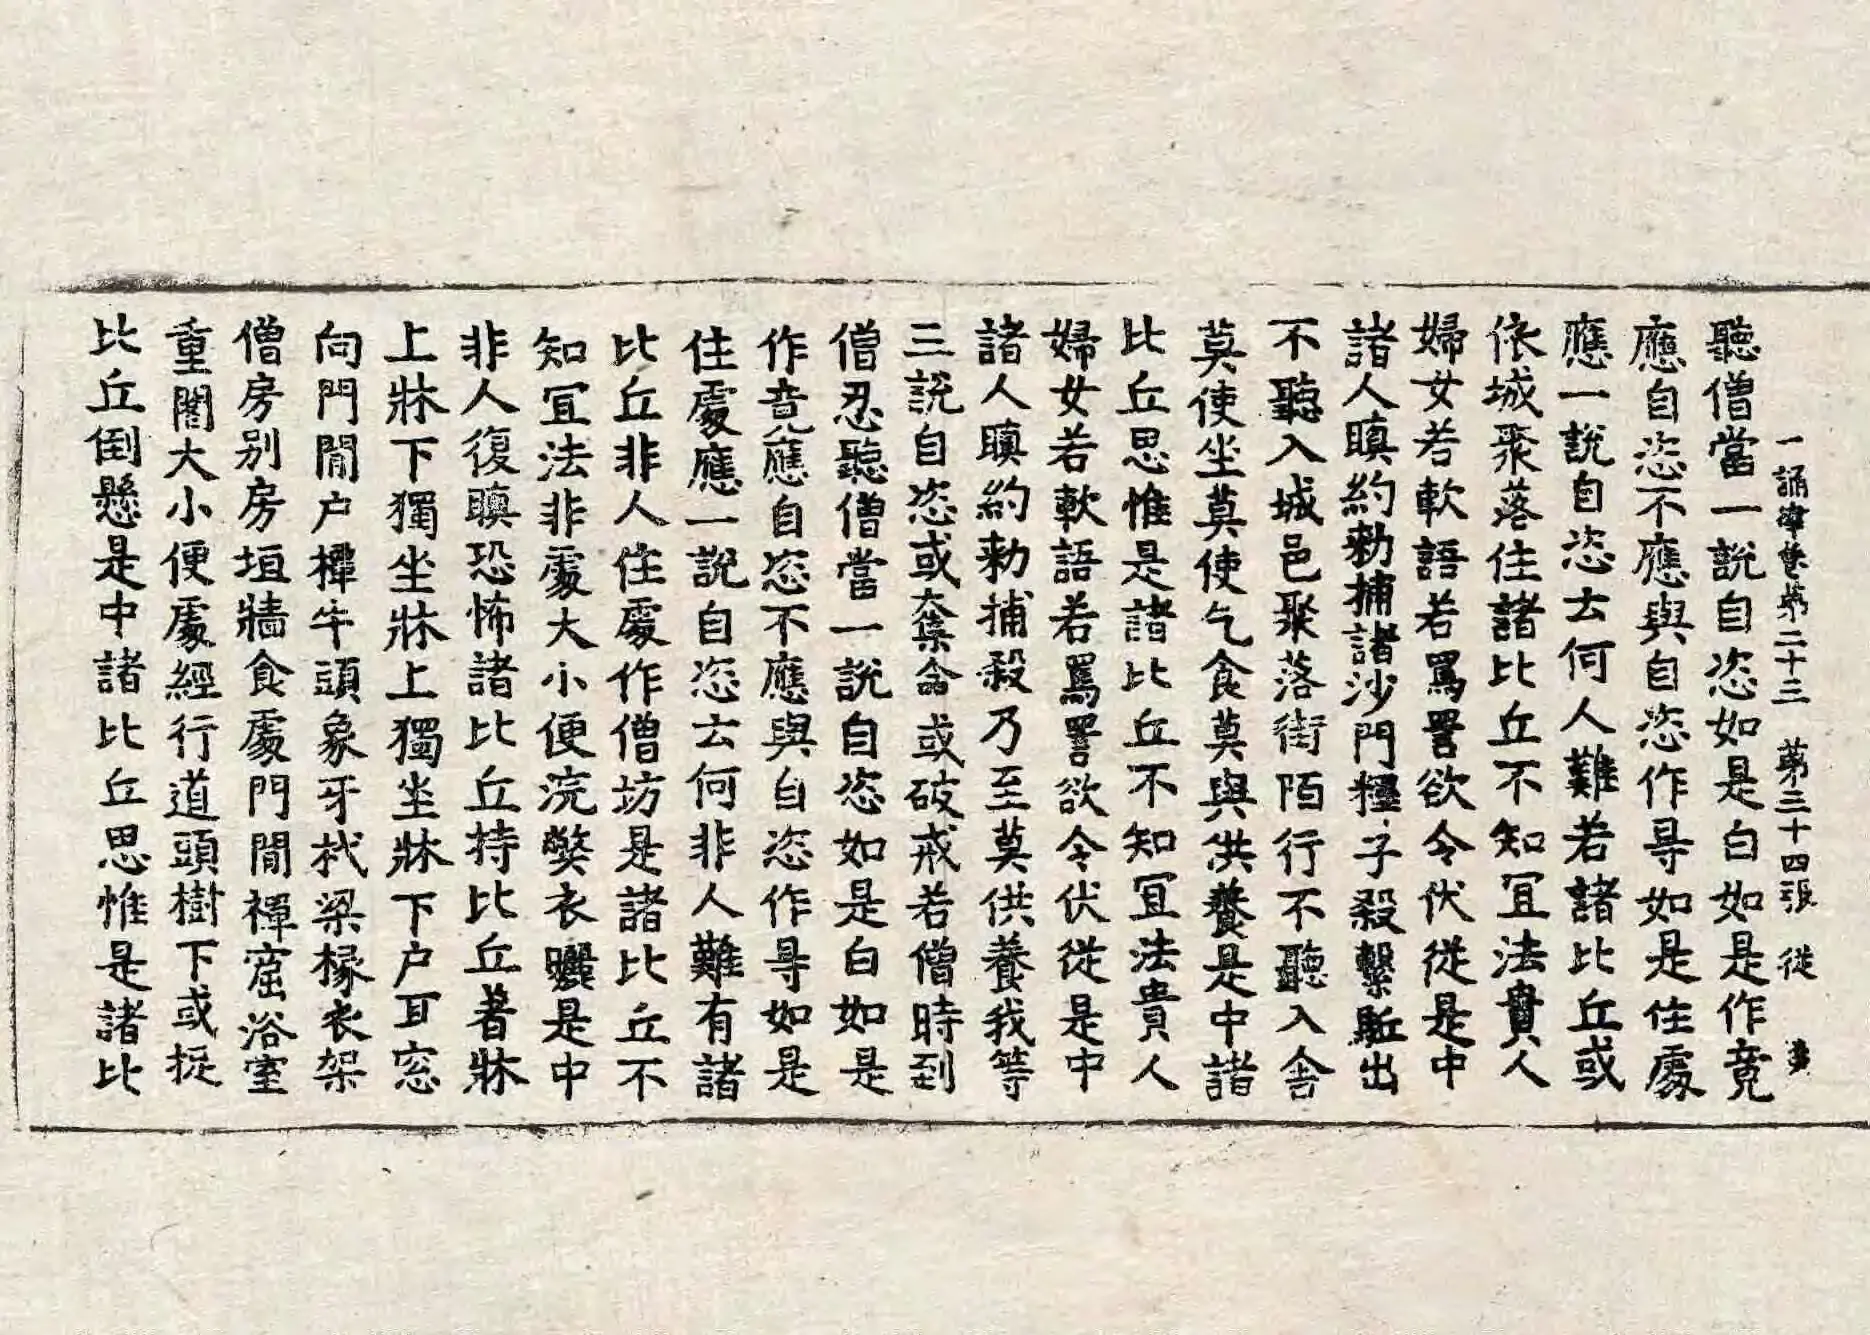 一誦律第二十三 第三十四張 從
聽僧當一說自恣如是白如是作竟
應自恣不應與自恣作㝵如是住處
應一說自恣去何人難若諸比丘或
依城聚落住諸比丘不知冝法貴人
婦女若軟語若罵詈欲令伏從是中
諸人瞋約勑捕諸沙門釋子殺繫駈出
不聽入城邑聚落街陌行不聽入舍
莫使坐莫使乞食莫與供養是中諸
比丘思惟是諸比丘不知冝法貴人
婦女若軟語若罵詈欲令伏從是中
諸人瞋約勑捕殺乃至莫供養我等
三說自恣或奪命或破戒若僧時到
僧忍聽僧當一說自恣如是白如是
作竟應自恣不應與自恣作㝵如是
住處應一說自恣去何非人難有諸
比丘非人住處作僧坊是諸比丘不
知冝法非處大小便浣弊衣曬是中
非人復瞋恐怖諸比丘持比丘著牀
上牀下獨坐牀上獨坐牀下户耳窓
向門閒户橝牛頭象牙杙梁椽衣架
僧房別房垣牆食處門閒禪窟浴室
重閣大小便處經行道頭樹下或捉
比丘倒懸是中諸比丘思惟是諸比